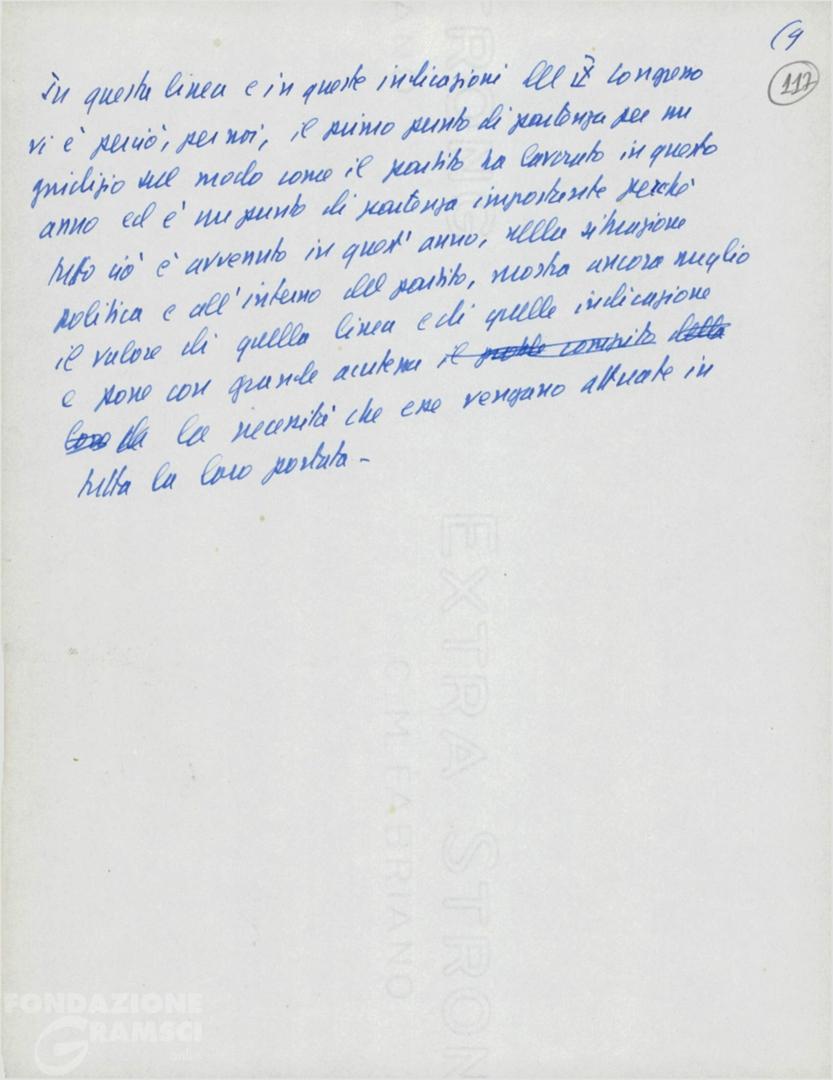 (9
117
In questa linea e in queste indicazioni del IX congresso
vi è perciò, per noi, il primo punto di partenza per un
giudizio sul modo come il partito ha lavorato in questo
anno ed è un punto di partenza importante perché
tutto ciò è avvenuto in quest'anno, nella situazione
politica e all'interno del partito, mostra ancora meglio
il valore di quella linea e di quelle indicazione
e pone con grande acutezza il compito della
loro la necessità che esse vengano attuate in
tutta la loro portata -
EXTRA STRONG
C.M. FABRIANO
FONDAZIONE
GRAMSCI
online